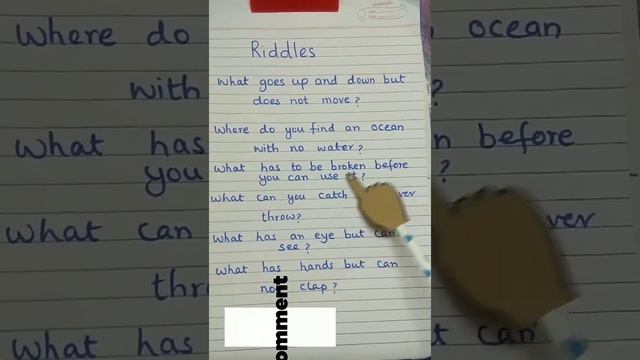 Riddles
What goes up and down but
does not move?
Where do you find an ocean
with no water?
What has to be broken before
you can use it?
What can you catch
throw?
What has an eye but can
see?
What has hands but can
clap?
omment